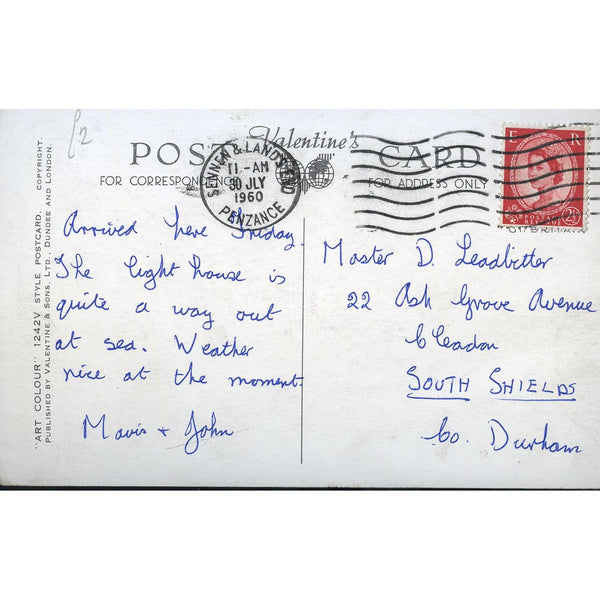 £2
Valentine's
POST CARD
FOR CORRESPONDENCE
FOR ADDRESS ONLY
SENNEN & LANDS END
11-AM
30 JLY
1960
PENZANCE
E R
2½
Arrived here Friday.
The light house is
quite a way out
at sea. Weather
nice at the moment.
Mavis + John
Master D. Leadbitter
22 Ash Grove Avenue
Cleadon
SOUTH SHIELDS
Co. Durham
"ART COLOUR" 1242V STYLE POSTCARD. COPYRIGHT.
PUBLISHED BY VALENTINE & SONS, LTD., DUNDEE AND LONDON.